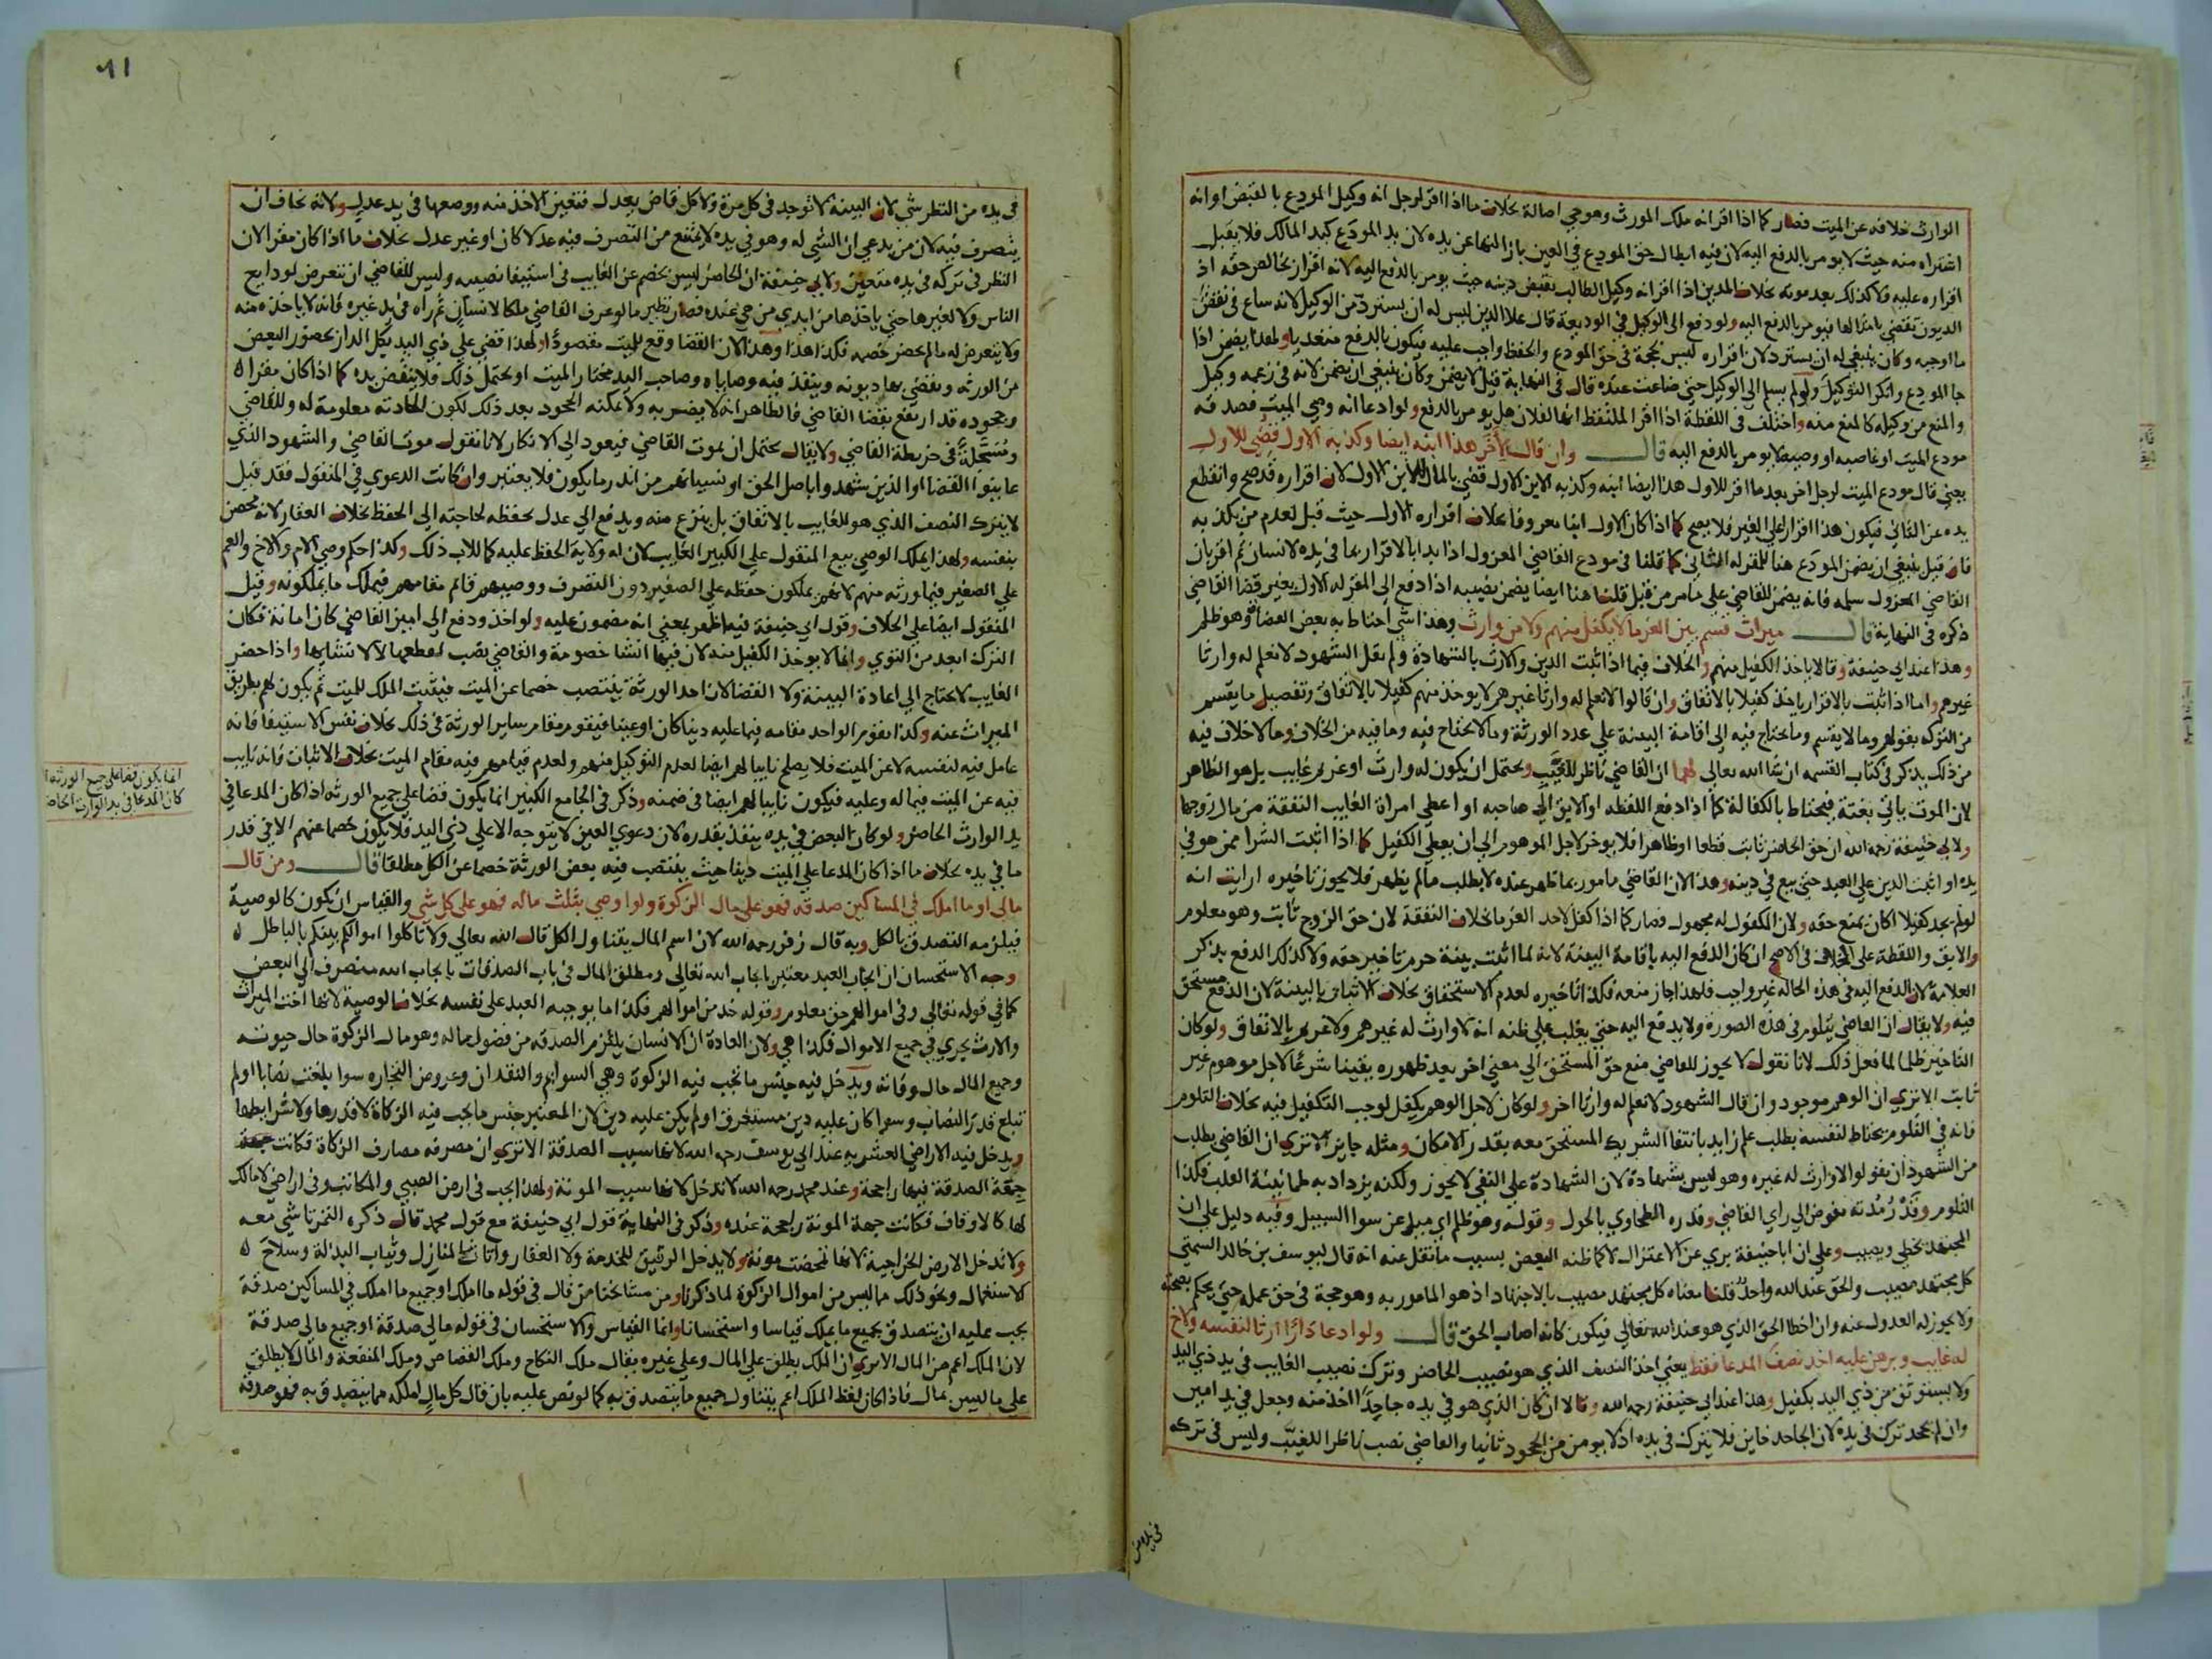 الوارث خلافه عن الميت فصار كما اذا اقر انه ملك المورث وهو حي اصالة بخلاف ما اذا اقر لرجل انه وكيل المودع بالقبض او انه
اشتراه منه حيث لا يومر بالدفع اليه لان فيه ابطال حق المودع في العين بازالتها عن يده لان يد المودع كيد المالك فلا يقبل
اقراره عليه ولا كذلك بعد موته بخلاف المدين اذا اقر انه وكيل الطالب بقبض دينه حيث يومر بالدفع اليه لانه اقرار بخالص حقه اذ
الديون تقضي بامثالها فيومر بالدفع اليه ولو دفع الى الوكيل في الوديعة قال علاء الدين ليس له ان يسترد من الوكيل لانه ساع في نقض
ما اوجبه وكان ينبغي له ان يسترد لان اقراره ليس بحجة في حق المودع والحفظ واجب عليه فيكون بالدفع متعديا ولهذا يضمن اذا
جا المودع وانكر التوكيل ولو لم يسلم الى الوكيل حتى ضاعت عنده قال في النهاية قيل لا يضمن وكان ينبغي ان يضمن لانه في زعمه وكيل
والمنع من وكيله كالمنع منه واختلف في اللقطة اذا اقر الملتقط انها لفلان هل يومر بالدفع ولو ادعا انه وصي الميت فصدقه
مودع الميت او غاصبه او وصيه لا يومر بالدفع اليه قال وان قال لاخر هذا ابنه ايضا وكذبه الاول قضي للاول
يعني قال مودع الميت لرجل اخر بعد ما اقر للاول هذا ايضا ابنه وكذبه الابن الاول قضي بالمال للابن الاول لان اقراره قد صح وانقطع
يده عن الثاني فيكون هذا اقرارا على الغير فلا يصح كما اذا كان الاول ابنا معروفا بخلاف اقراره الاول حيث قبل لعدم من يكذبه
فان قيل ينبغي ان يضمن المودع هنا للمقر له الثاني كما قلنا في مودع القاضي المعزول اذا بدا بالاقرار بما في يده لانسان ثم اقر بان
القاضي المعزول سلمه فانه يضمن للقاضي على ما مر من قبل قلنا هنا ايضا يضمن نصيبه اذا دفع الى المقر له الاول بغير قضا القاضي
ذكره في النهاية قال ميراث قسم بين الغرما لا يكفل منهم ولا من وارث وهذا شي احتاط به بعض القضاة وهو ظلم
وهذا عند ابي حنيفة وقالا ياخذ الكفيل منهم والخلاف فيما اذا ثبت الدين والارث بالشهادة ولم يقل الشهود لا نعلم له وارثا
غيرهم واما اذا ثبت بالاقرار ياخذ كفيلا بالاتفاق وان قالوا لا نعلم له وارثا غيرهم لا يوخذ منهم كفيلا بالاتفاق وتفصيل ما يقسم
من التركه بقولهم وما لا يقسم وما يحتاج فيه الى اقامة البينة على عدد الورثة وما لا يحتاج فيه وما فيه من الخلاف وما لا خلاف فيه
من ذلك يذكر في كتاب القسمه ان شا الله تعالى لهما ان القاضي ناظر للغيب ويحتمل ان يكون له وارث او غريم غايب بل هو الظاهر
لان الموت ياتي بغتة فيحتاط بالكفالة كما اذا دفع اللقطه او الابق الى صاحبه او اعطي امراة الغايب النفقة من مال زوجها
ولابي حنيفة رحمه الله ان حق الحاضر ثابت قطعا او ظاهرا فلا يوخر لاجل الموهوم الى ان يعطي الكفيل كما اذا اثبت الشرا ممن هو في
يده او اثبت الدين على العبد حتى بيع في دينه وهذا لان القاضي مامور بما ظهر عنده لا بطلب ما لم يظهر فلا يجوز تاخيره ارايت انه
لو لم يجد كفيلا اكان يمنع حقه ولان المكفول له مجهول فصار كما اذا كفل لاحد الغرما بخلاف النفقة لان حق الزوج ثابت وهو معلوم
والابق واللقطة على الخلاف في الاصح ان كان الدفع اليه باقامة البينة لانه لما اثبت ببينة حرم تاخير حقه ولا كذلك الدفع بذكر
العلامة لان الدفع اليه في هذه الحاله غير واجب فلهذا جاز منعه فكذا تاخيره لعدم الاستحقاق بخلاف الاثبات بالبينة لان الدفع مستحق
فيه ولا يقال ان القاضي يتلوم في هذه الصورة ولا يدفع اليه حتى يغلب على ظنه انه لا وارث له غيرهم ولا غريم بالاتفاق ولو كان
التاخير ظلما لما فعل ذلك لانا نقول لا يجوز للقاضي منع حق المستحق الى معنى اخر بعد ظهوره يقينا شرعا لاجل موهوم غير
ثابت الا ترى ان الوهم موجود وان قال الشهود لا نعلم له وارثا اخر ولو كان لاجل الوهم يكفل لوجب التكفيل فيه بخلاف التلوم
فانه في التلوم يحتاط لنفسه بطلب علم زايد بانتفا الشريك المستحق معه بقدر الامكان ومثله جايز الا ترى ان القاضي يطلب
من الشهود ان يقولوا لا وارث له غيره وهو ليس بشهادة لان الشهادة على النفي لا يجوز ولكنه يزداد به طمانينة القلب فكذا
التلوم وقدر مدته مفوض الى راي القاضي وقدره الطحاوي بالحول وقوله وهو ظلم اي ميل عن سوا السبيل وفيه دليل على ان
المجتهد يخطي ويصيب وعلى ان ابا حنيفة بري عن الاعتزال لا كما ظنه البعض بسبب ما نقل عنه انه قال ليوسف بن خالد السمتي
كل مجتهد مصيب والحق عند الله واحد قلنا معناه كل مجتهد مصيب بالاجتهاد اذ هو المامور به وهو حجة في حق عمله حتى يحكم بصحته
ولا يجوز له العدول عنه وان اخطا الحق الذي هو عند الله تعالى فيكون كانه اصاب الحق قال ولو ادعا دارا ارثا لنفسه ولاخ
له غايب وبرهن عليه اخذ نصف المدعا فقط يعني اخذ النصف الذي هو نصيب الحاضر وترك نصيب الغايب في يد ذي اليد
ولا يستوثق من ذي اليد بكفيل وهذا عند ابي حنيفة رحمه الله وقالا ان كان الذي هو في يده جاحدا اخذ منه وجعل في يد امين
وان لم يجحد ترك في يده لان الجاحد خاين فلا يترك في يده اذ لا يومن من الجحود ثانيا والقاضي نصب ناظرا للغيب وليس في تركه
في يده من
٩١
في يده من النظر شي لان البينة لا توجد في كل مرة ولا كل قاض يعدل فتعين الاخذ منه ووضعها في يد عدل ولانه يخاف ان
يتصرف فيه لان من يدعي ان الشي له وهو في يده لا يمتنع من التصرف فيه عدلا كان او غير عدل بخلاف ما اذا كان مقرا لان
النظر في تركه في يده متعين ولابي حنيفة ان الحاضر ليس بخصم عن الغايب في استيفا نصيبه وليس للقاضي ان يتعرض لودايع
الناس ولا لغيرها حتى ياخذها من ايدي من هي عنده فصار نظير ما لو عرف القاضي ملكا لانسان ثم راه في يد غيره فانه لا ياخذه منه
ولا يتعرض له ما لم يحضر خصمه فكذا هذا وهذا لان القضا وقع للميت مقصودا ولهذا قضي على ذي اليد بكل الدار بحضور البعض
من الورثه ويقضي بها ديونه وينفذ فيه وصاياه وصاحب اليد مختار الميت او يحتمل ذلك فلا ينقض يده كما اذا كان مقرا
وجحوده قد ارتفع بقضا القاضي فالظاهر انه لا يضر به ولا يمكنه الجحود بعد ذلك لكون الحادثه معلومة له وللقاضي
ومسجلة في خريطة القاضي ولا يقال يحتمل ان يموت القاضي فيعود الى الانكار لانا نقول موت القاضي والشهود الذي
عاينوا القضا او الذين شهدوا باصل الحق او نسيانهم من اندر ما يكون فلا يعتبر وان كانت الدعوي في المنقول فقد قيل
لا يترك النصف الذي هو للغايب بالاتفاق بل ينزع منه ويدفع الى عدل بحفظه لحاجته الى الحفظ بخلاف العقار لانه محصن
بنفسه ولهذا يملك الوصي بيع المنقول على الكبير الغايب لان له ولاية الحفظ عليه كما للاب ذلك وكذا حكم وصي الام والاخ والعم
على الصغير فيما ورثه منهم لانهم يملكون حفظه على الصغير دون التصرف ووصيهم قائم مقامهم فيملك ما يملكونه وقيل
المنقول ايضا على الخلاف وقول ابي حنيفة فيه اظهر بمعني انه مضمون عليه ولو اخذ ودفع الى امين القاضي كان امانة فكان
الترك ابعد من التوي وانما لا يوخذ الكفيل منه لان فيها انشا خصومة والقاضي نصب لقطعها لا لانشايها واذا حضر
الغايب لا يحتاج الى اعادة البينة ولا القضا لان احد الورثة ينتصب خصما عن الميت فيثبت الملك للميت ثم يكون لهم بطريق
الميراث عنه وكذا يقوم الواحد مقامه فيما عليه دينا كان او عينا فيقوم مقام ساير الورثة في ذلك بخلاف نفس الاستيفا فانه
عامل فيه لنفسه لا عن الميت فلا يصلح نايبا لهم ايضا لعدم التوكيل منهم ولعدم قيامهم فيه مقام الميت بخلاف الاثبات فانه نايب
فيه عن الميت فيما له وعليه فيكون نايبا لهم ايضا في ضمنه وذكر في الجامع الكبير انما يكون قضا على جميع الورثه اذا كان المدعا في
يد الوارث الحاضر ولو كان البعض في يده ينفذ بقدره لان دعوي العين لا يتوجه الا على ذي اليد فلا يكون خصما عنهم الا في قدر
ما في يده بخلاف ما اذا كان المدعا على الميت دينا حيث ينتصب فيه بعض الورثة خصما عن الكل مطلقا قال ومن قال
مالي او ما املك في المساكين صدقه فهو على مال الزكوة ولو اوصي بثلث ماله فهو على كل شي والقياس ان يكون كالوصية
فيلزمه التصدق بالكل وبه قال زفر رحمه الله لان اسم المال يتناول الكل قال الله تعالى ولا تاكلوا اموالكم بينكم بالباطل
وجه الاستحسان ان ايجاب العبد معتبر بايجاب الله تعالى ومطلق المال في باب الصدقات بايجاب الله منصرف الى البعض
كما في قوله تعالى وفي اموالهم حق معلوم وقوله خذ من اموالهم فكذا ما يوجبه العبد على نفسه بخلاف الوصية لانها اخت الميراث
والارث يجري في جميع الاموال فكذا هي ولان العادة ان الانسان يلتزم الصدقه من فضول ماله وهو مال الزكوة حال حيوته
وجميع المال حال وفاته ويدخل فيه جنس ما تجب فيه الزكوة وهي السوايم والنقدان وعروض التجاره سوا بلغت نصابا او لم
تبلغ قدر النصاب وسوا كان عليه دين مستغرق او لم يكن عليه دين لان المعتبر جنس ما يجب فيه الزكاة لا قدرها ولا شرايطها
ويدخل فيه الاراضي العشريه عند ابي يوسف رحمه الله لانها سبب الصدقة الا ترى ان مصرفه مصارف الزكاة فكانت
جهة الصدقة فيها راجحة وعند محمد رحمه الله لا تدخل لانها سبب المونة ولهذا يجب في ارض الصبي والمكاتب وفي اراضي لا مالك
لها كالاوقاف فكانت جهة المونة راجحة عنده وذكر في النهاية قول ابي حنيفة مع قول محمد قال ذكره التمرتاشي معه
ولا تدخل الارض الخراجية لانها تمحضت مونة ولا يدخل الرقيق للخدمة ولا العقار واثاث المنازل وثياب البذلة وسلاح
الاستعمال ونحو ذلك مما ليس من اموال الزكوة لما ذكرنا ومن مشايخنا من قال في قوله ما املك او جميع ما املك في المساكين صدقة
يجب عليه ان يتصدق بجميع ما يملك قياسا واستحسانا وانما القياس والاستحسان في قوله مالي صدقة او جميع مالي صدقة
لان الملك اعم من المال الا ترى ان الملك يطلق على المال وعلى غيره يقال ملك النكاح وملك القصاص وملك المنفعة والمال لا يطلق
على ما ليس بمال فاذا كان لفظ الملك اعم يتناول جميع ما يتصدق به كما لو نص عليه بان قال كل مال املكه مما يتصدق به فهو صدقة
انما يكون قضا على جميع الورثة اذا
كان المدعا في يد الوارث الحاضر